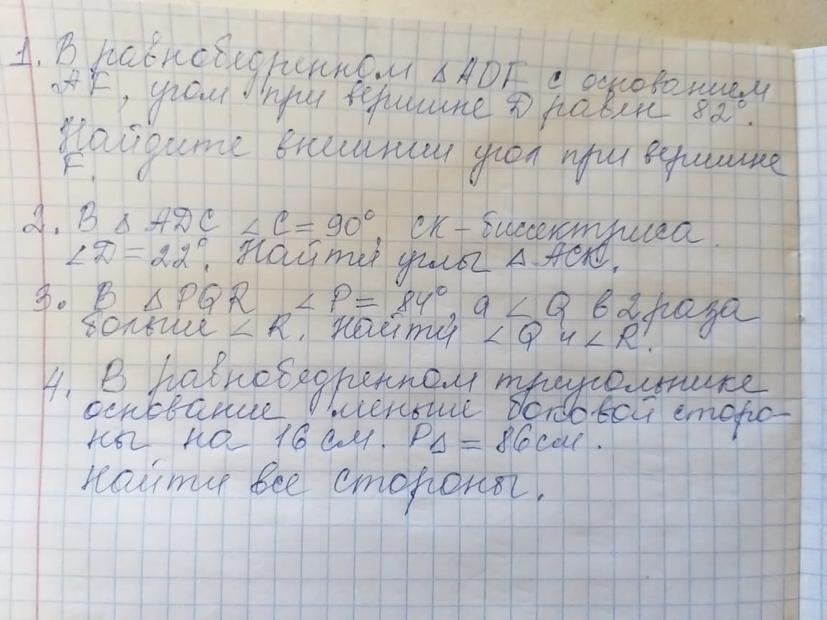 1. В равнобедренном △ADF с основанием
AF, угол при вершине D равен 82°.
Найдите внешний угол при вершине
F.
2. В △ ADC ∠C = 90°, CK - биссектриса.
∠D = 22°. Найти углы △ ACK.
3. В △PQR ∠P = 84°, а ∠Q в 2 раза
больше ∠R. Найти ∠Q и ∠R.
4. В равнобедренном треугольнике
основание меньше боковой сторо-
ны на 16 см. P△ = 86 см.
Найти все стороны.